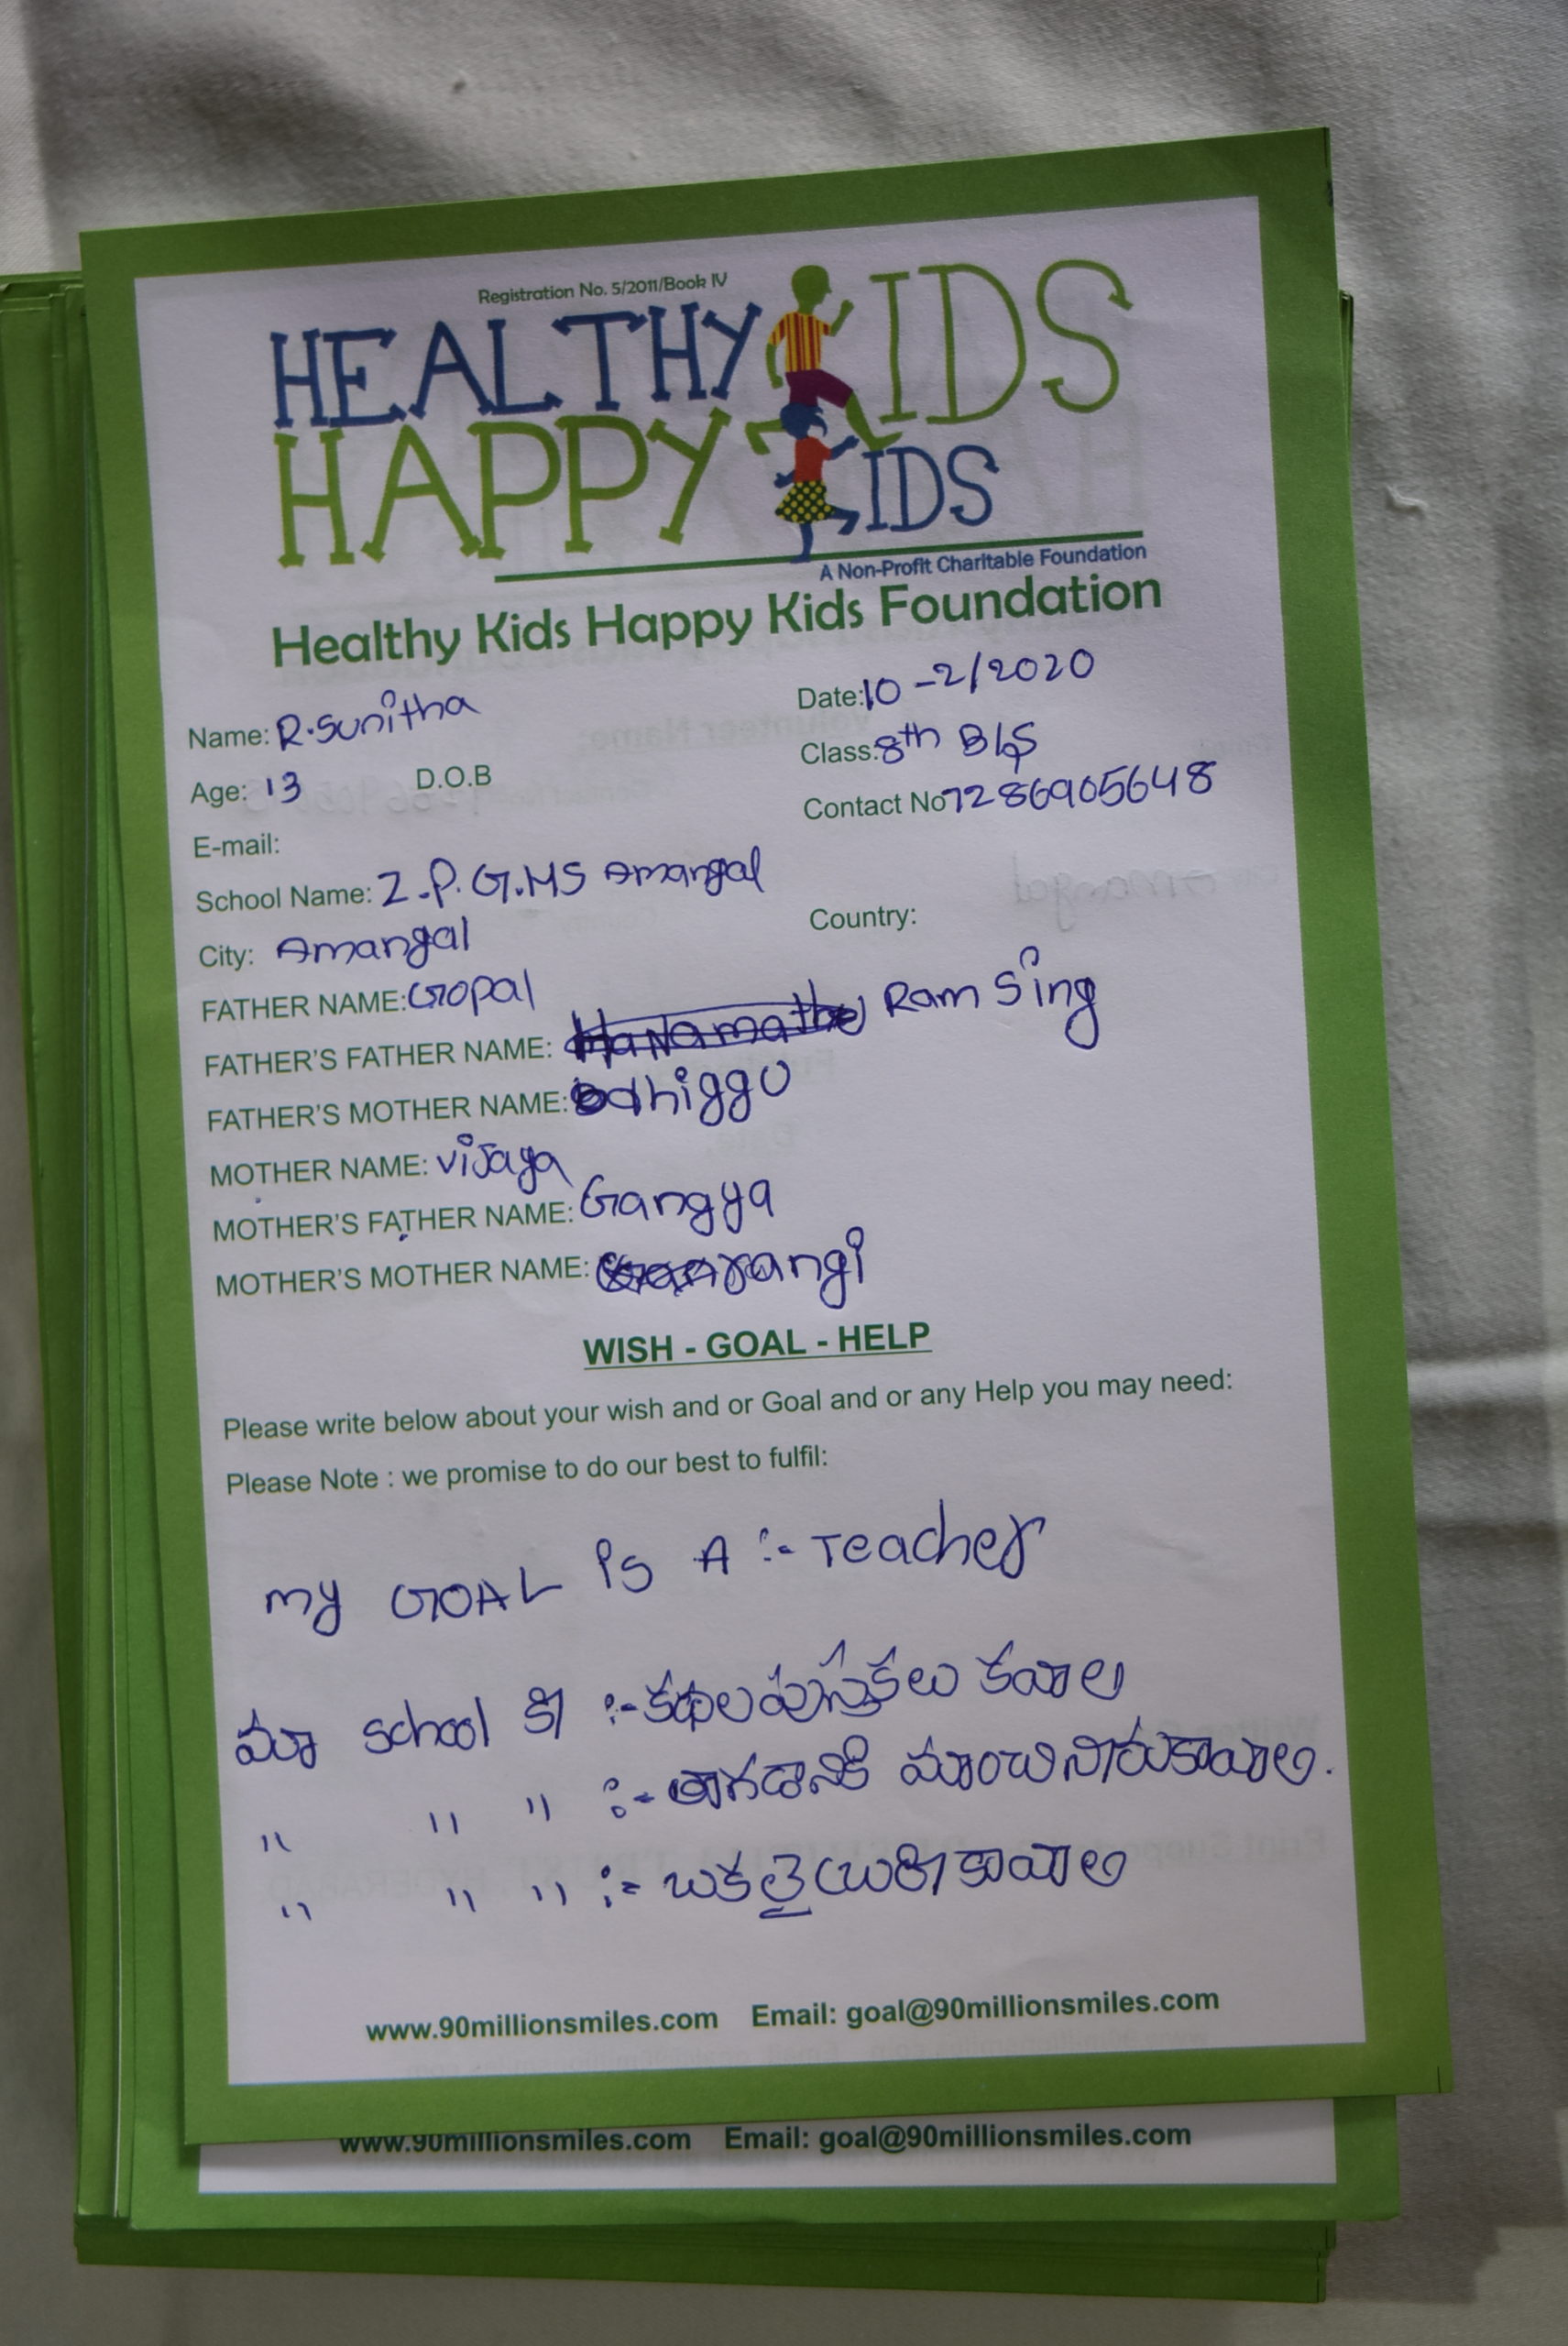 Registration No. 5/2011/Book IV
HEALTHY KIDS
HAPPY KIDS
A Non-Profit Charitable Foundation
Healthy Kids Happy Kids Foundation
Name: R.Sunitha Date: 10-2/2020
Age: 13 D.O.B Class: 8th
E-mail: Contact No 7286905648
School Name: Z.P.G.HS Amangal
City: Amangal Country:
FATHER NAME: Gopal
FATHER'S FATHER NAME: Ram Sing
FATHER'S MOTHER NAME: dhiggu
MOTHER NAME: vijaya
MOTHER'S FATHER NAME: Gangya
MOTHER'S MOTHER NAME: rangi
WISH - GOAL - HELP
Please write below about your wish and or Goal and or any Help you may need:
Please Note : we promise to do our best to fulfil:
my GOAL is A :- Teacher
మా school కి :- కథల పుస్తకలు కవాల
" " " :- తాగడానికి మాంచి నీరు కావాల.
" " " :- ఒక లైబ్రరి కావాల
www.90millionsmiles.com Email: goal@90millionsmiles.com
www.90millionsmiles.com Email: goal@90millionsmiles.com